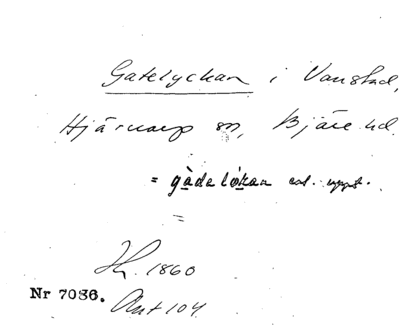 Gatelyckan i Vanstad,
Hjärnarp sn, Bjäre hd.
= gàdelökan enl. uppt.
=
Lt. 1860
Nr 7036. Ant 104